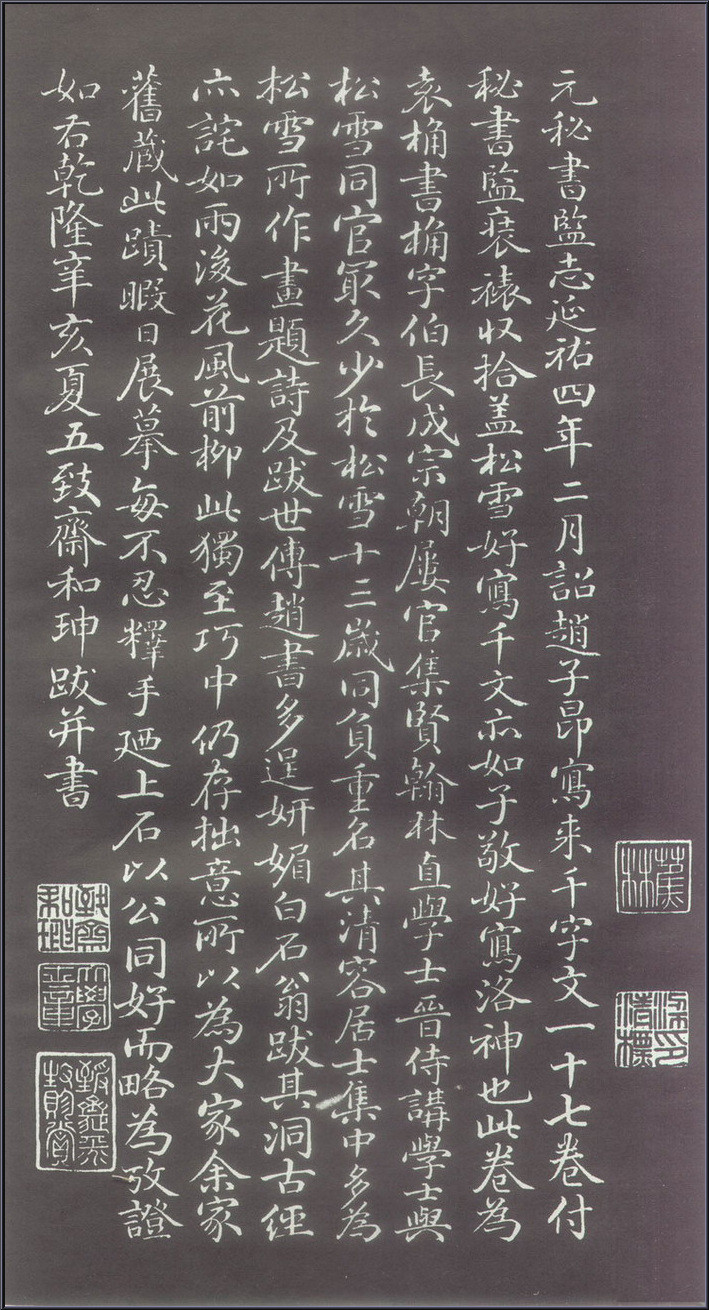 元秘書監志延祐四年二月詔趙子昂寫来千字文一十七卷付
秘書監裒褾収拾盖松雪好寫千文亦如子敬好寫洛神也此卷為
袁桷書桷字伯長成宗朝屢官集賢翰林直學士晉侍講學士與
松雪同官冣久少於松雪十三歲同負重名其清容居士集中多為
松雪所作畫題詩及跋世傳趙書多逞妍媚白石翁跋其洞古經
亦詫如雨後花風前柳此獨至巧中仍存拙意所以為大家余家
舊蔵此蹟暇日展摹每不忍釋手廼上石以公同好而略為攷證
如右乾隆辛亥夏五致齋和珅跋并書
蕉林